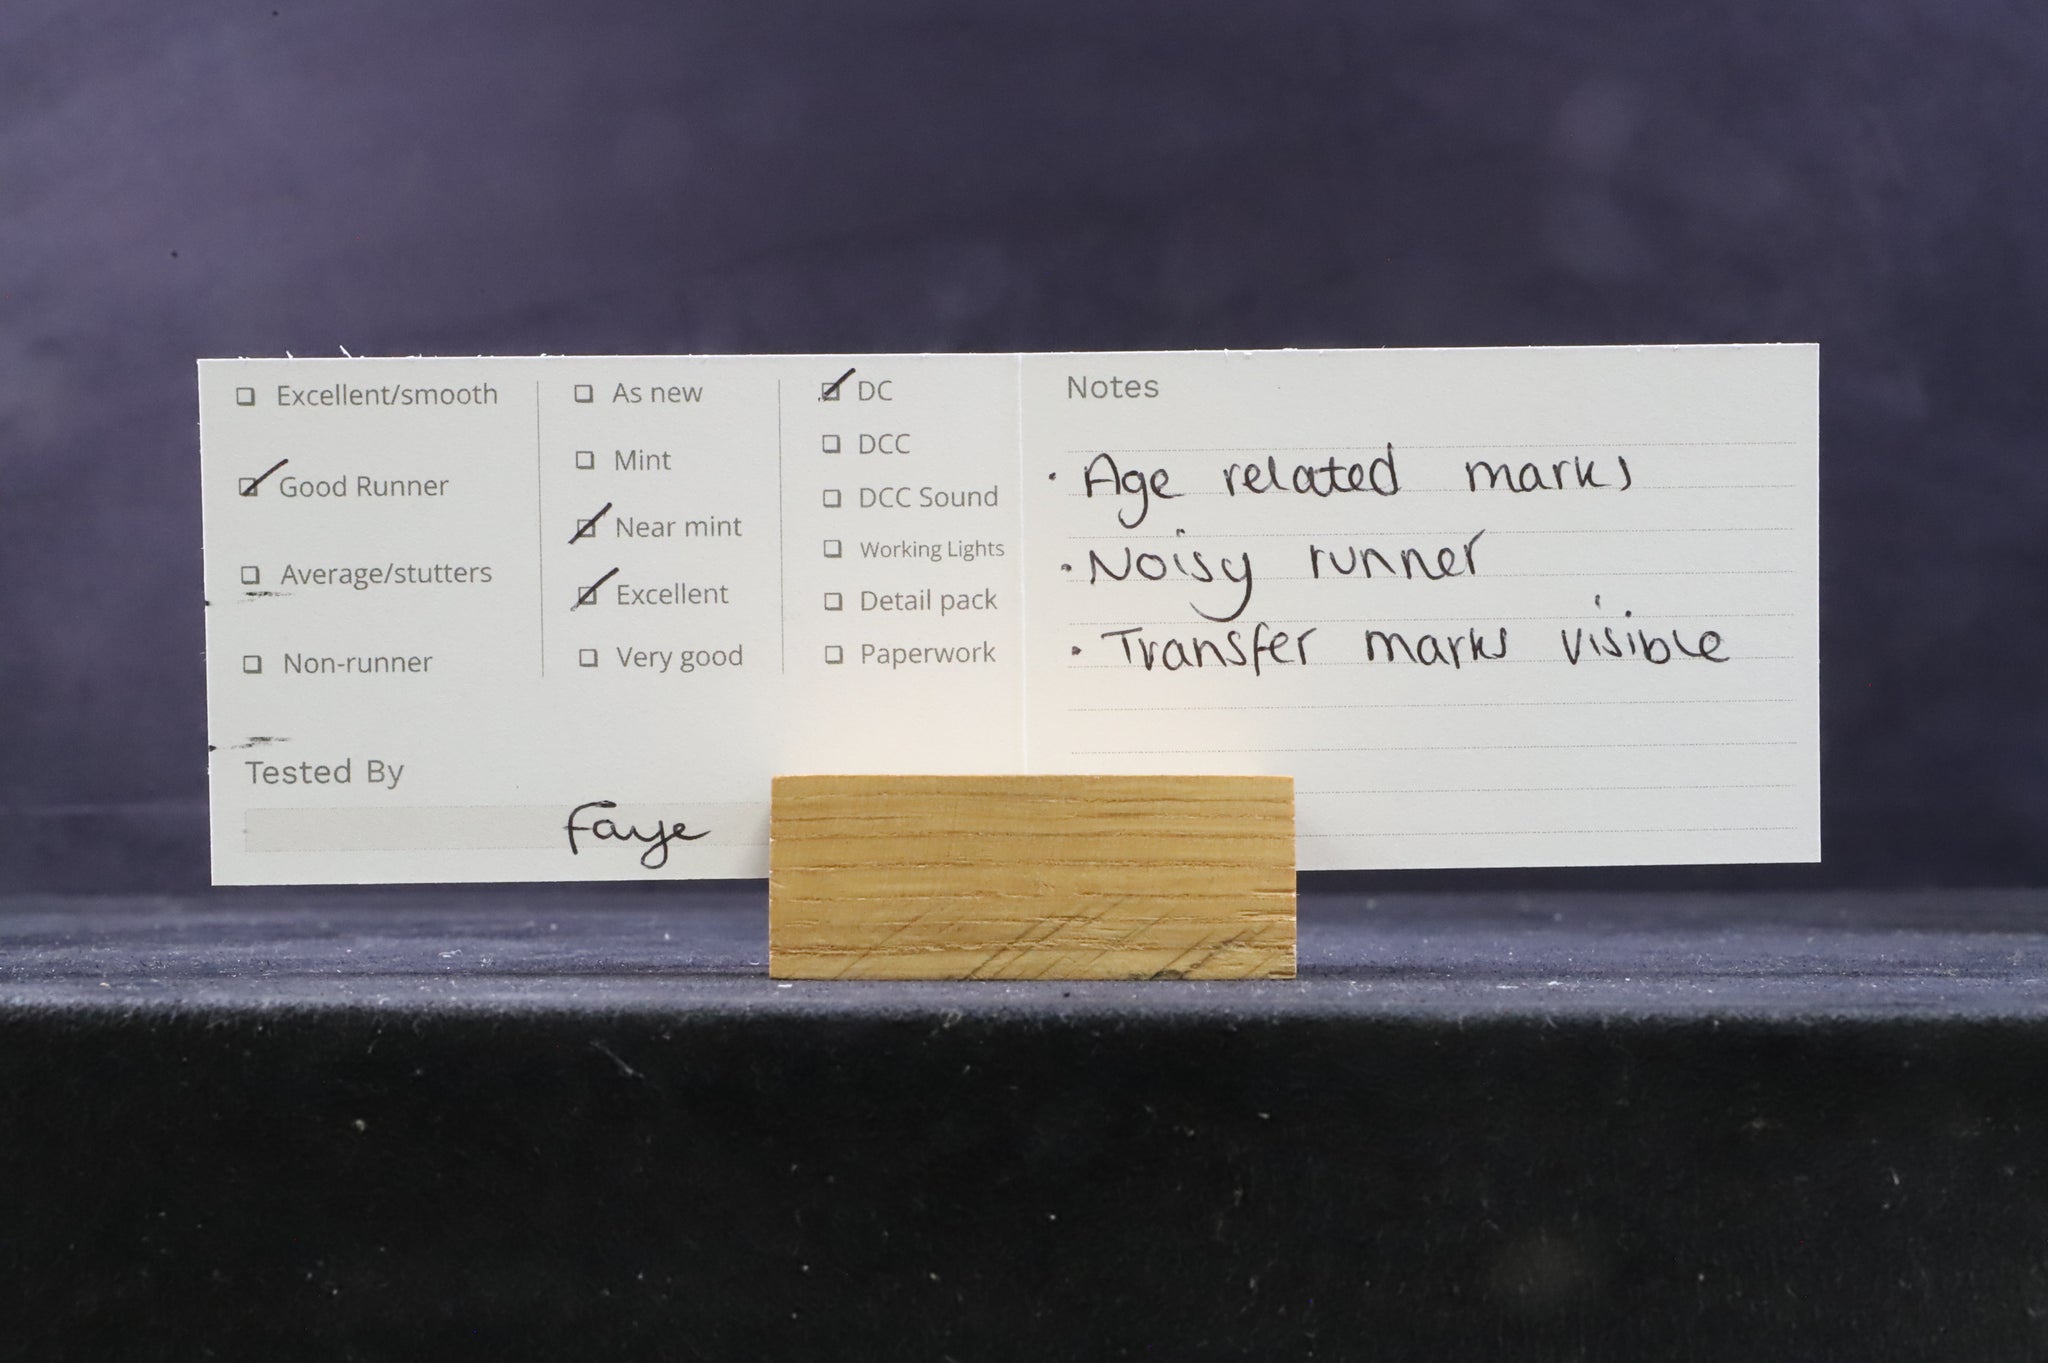 Excellent/smooth
Good Runner
Average/stutters
Non-runner
As new
Mint
Near mint
Excellent
Very good
DC
DCC
DCC Sound
Working Lights
Detail pack
Paperwork
Tested By
Faye
Notes
· Age related marks
· Noisy runner
· Transfer marks visible